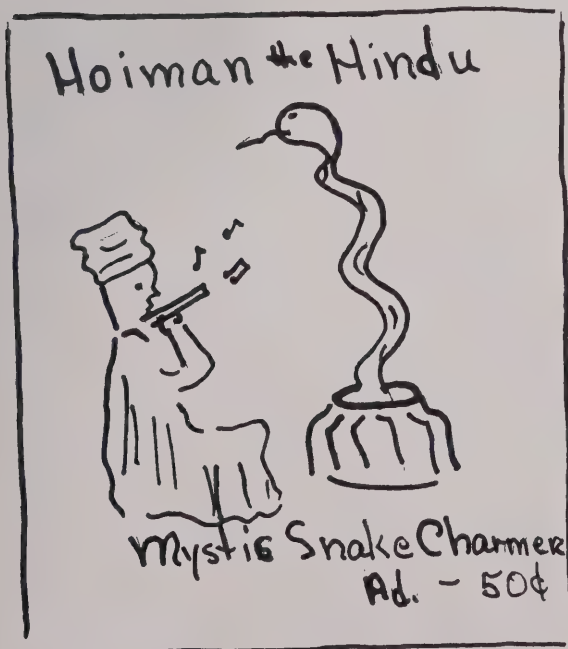 Hoiman the Hindu
Mystic Snake Charmer
Ad. - 50¢